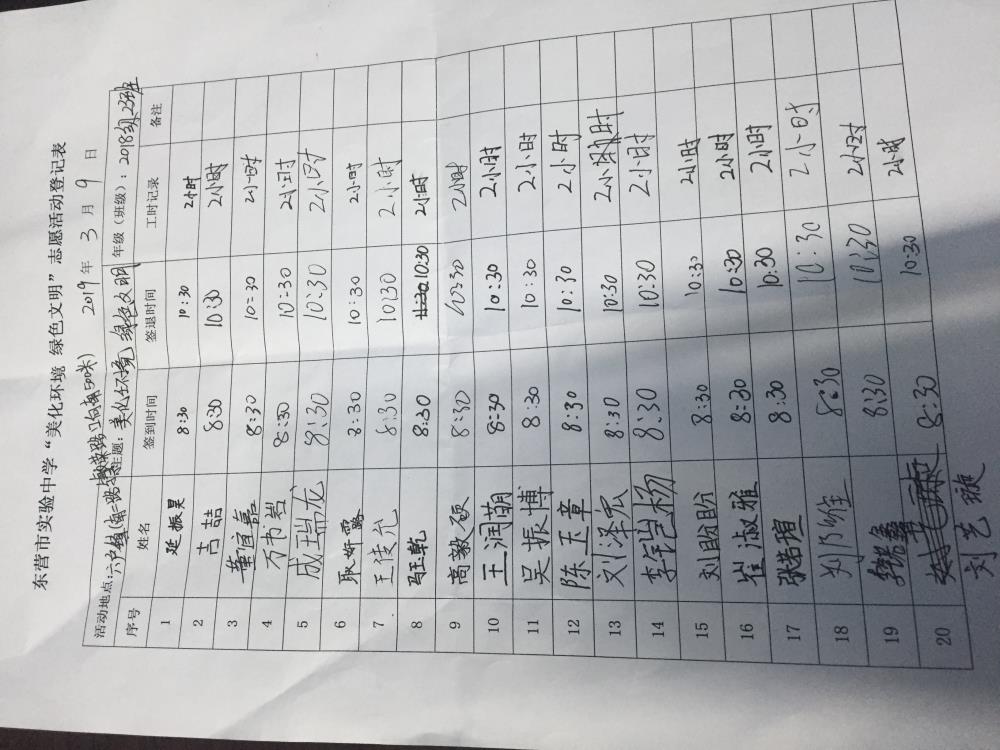 东营市实验中学“美化环境 绿色文明”志愿活动登记表
2019年 3 月 9 日
活动地点：六户镇 主题：美化环境，绿色文明 年级（班级）：2018级23班
序号 姓名 签到时间 签退时间 工时记录 备注
1 延振昊 8:30 10:30 2小时
2 吉喆 8:30 10:30 2小时
3 8:30 10:30 2小时
4 8:30 10:30 2小时
5 成瑞龙 8:30 10:30 2小时
6 耿妍露 8:30 10:30 2小时
7 王俊允 8:30 10:30 2小时
8 马玉乾 8:30 10:30 2小时
9 高毅硕 8:30 10:30 2小时
10 王润萌 8:30 10:30 2小时
11 吴振博 8:30 10:30 2小时
12 陈玉章 8:30 10:30 2小时
13 刘泽宏 8:30 10:30 2小时
14 李岂杨 8:30 10:30 2小时
15 刘盼盼 8:30 10:30 2小时
16 崔淑雅 8:30 10:30 2小时
17 8:30 10:30 2小时
18 8:30 10:30 2小时
19 8:30 10:30 2小时
20 刘艺璇 8:30 10:30 2小时